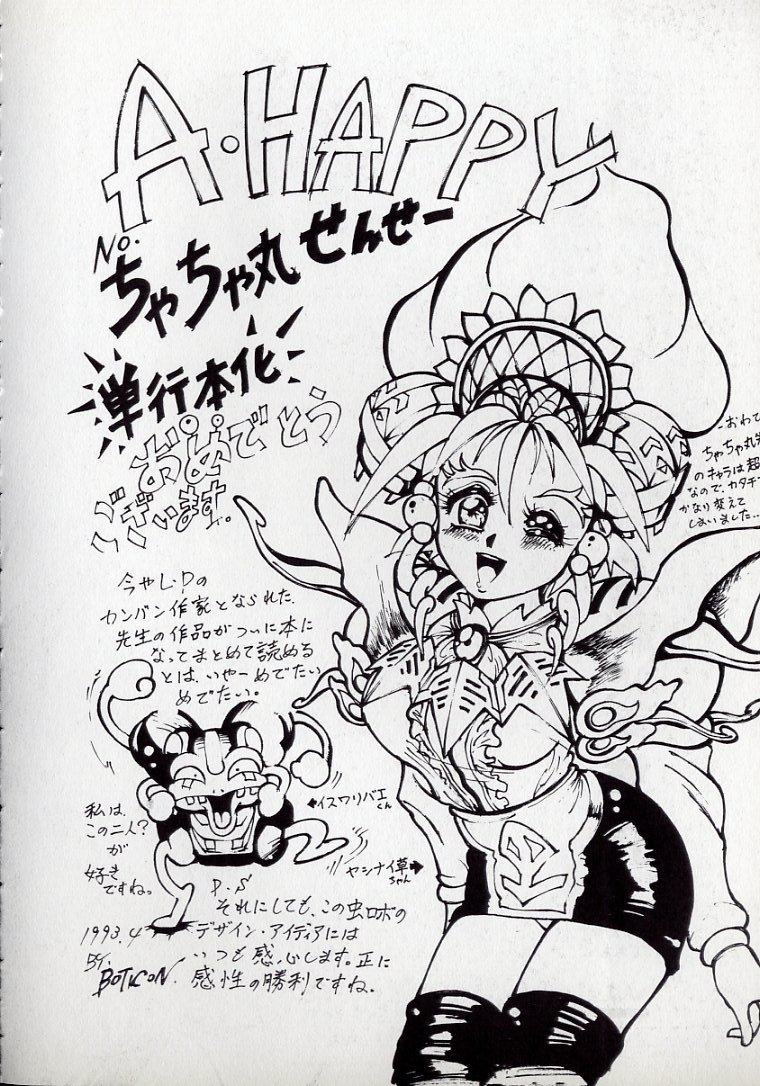 A・HAPPY
No.
ちゃちゃ丸せんせー
単行本化
おめでとう
ございます。
-おわて
ちゃちゃ丸先
のキャラは超
なので、カタチ
かなり変えて
しまいました…
今やL・Pの
カンバン作家となられた
先生の作品がついに本に
なってまとめて読める
とは、いやーめでたい
めでたい。
←イスワリバエくん
私は、
この二人?
が
好き
ですね。
ヤシナイ草ちゃん→
P.S
それにしても、この虫ロボの
デザイン・アイディアには
いつも感心します。正に
感性の勝利ですね。
1993.4
BY.
BOTICON.